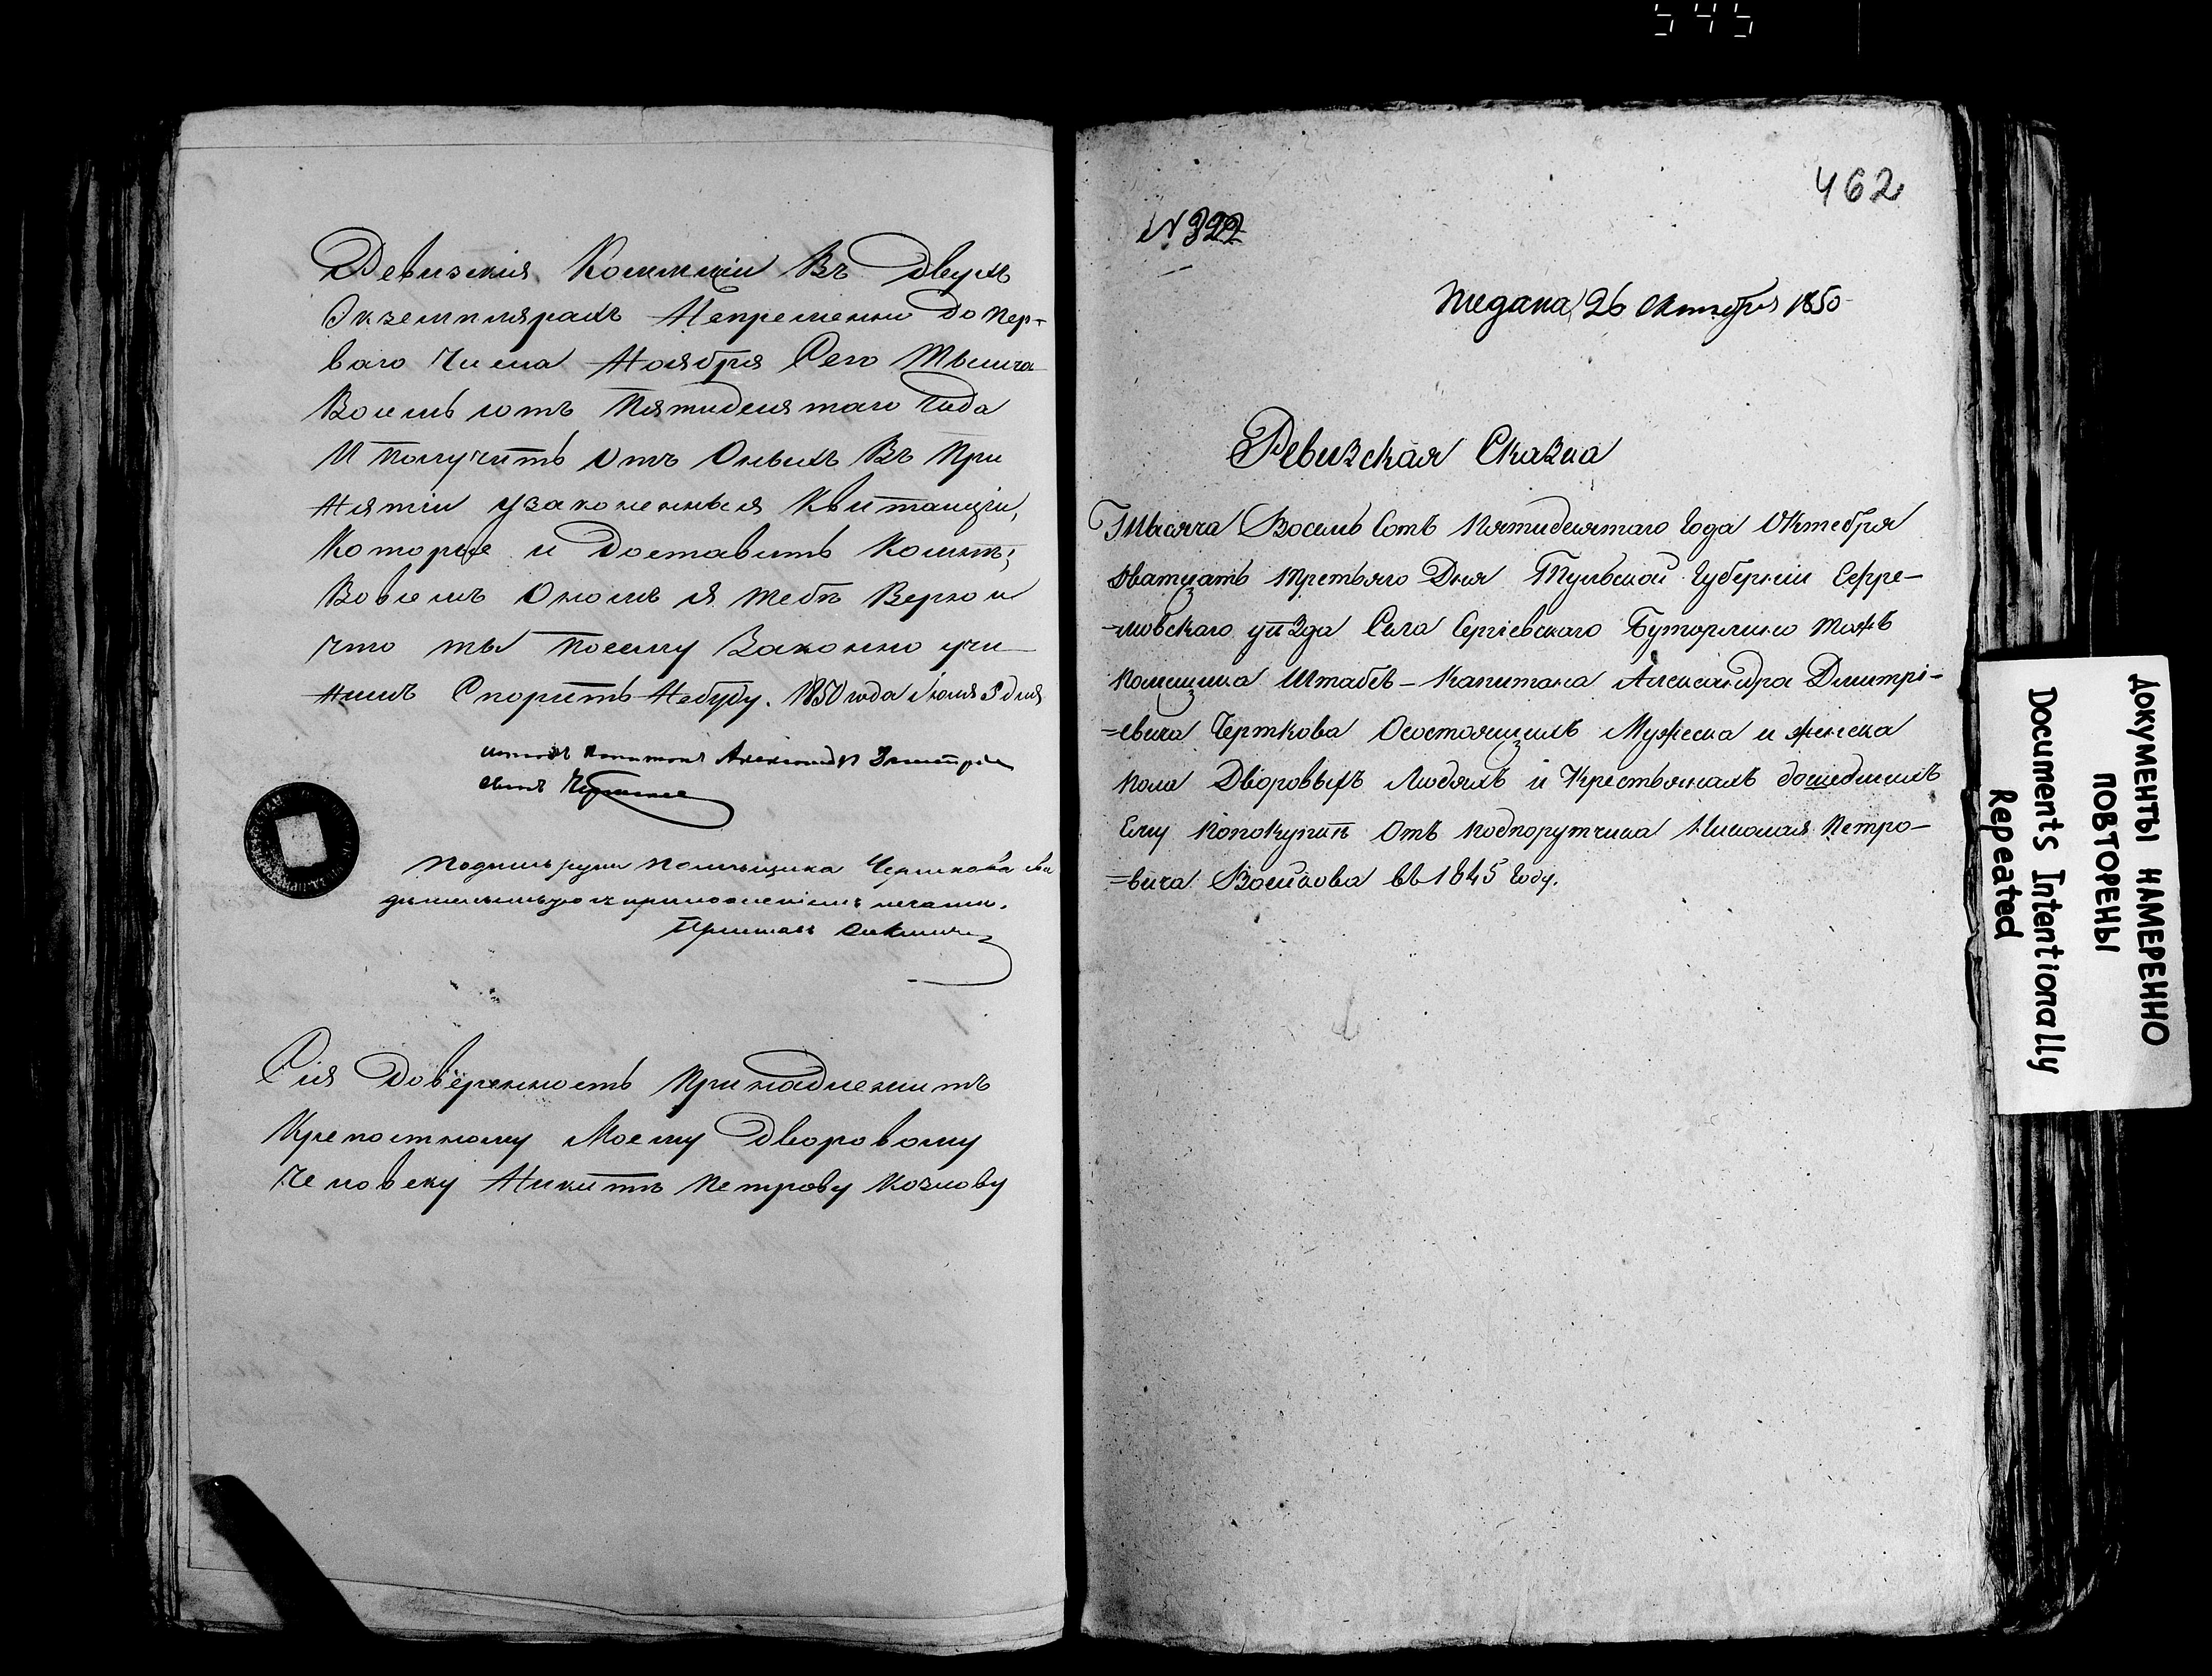 545
Ревизскiя Коммисiи Въ Двухъ
Экземплярахъ Непременно До Пер-
ваго Числа Ноября Сего Тысяча
Восемь сотъ Пятидесятаго Года
И Получить Отъ Оныхъ Въ При
Нятiи узаконенныя Квитанцiи,
Которые и Доставить Комнъ;
Вовсемъ Ономъ я тебе Верю и
что ты Поеему Законно учи-
нишъ Спорить Небуду. 1850 года Iюля 3 дня
штабъ капитанъ Александръ Дмитрiе
евичъ Чертковъ
Подпись руки Помещика Черткова сви
детельствую съ приложенiемъ печати.
Приставъ
Сiя Доверенность Принадлежитъ
Крепостному Моему Дворовому
Человеку Никитъ Петрову Козлову
462
N 322
Подана 26 Октября 1850
Ревизская Сказка
Тысяча Восемь Сотъ Пятидесятаго Года Октября
Дватцать третьяго Дня Тульской Губернiи Ефре-
-мовскаго уезда Села Сергiевскаго Бутормино тожъ
Помещика Штабсъ-Капитана Александра Дмитрi-
=евича Черткова Осостоящихъ Мужеска и женска
пола Дворовыхъ Людяхъ и Крестьянахъ дошедшихъ
Ему Попокупкъ Отъ Подпорутчика Николая Петро-
=вича Воейкова въ 1845 Году.
ДОКУМЕНТЫ НАМЕРЕННО
ПОВТОРЕНЫ
Documents Intentionally
Repeated